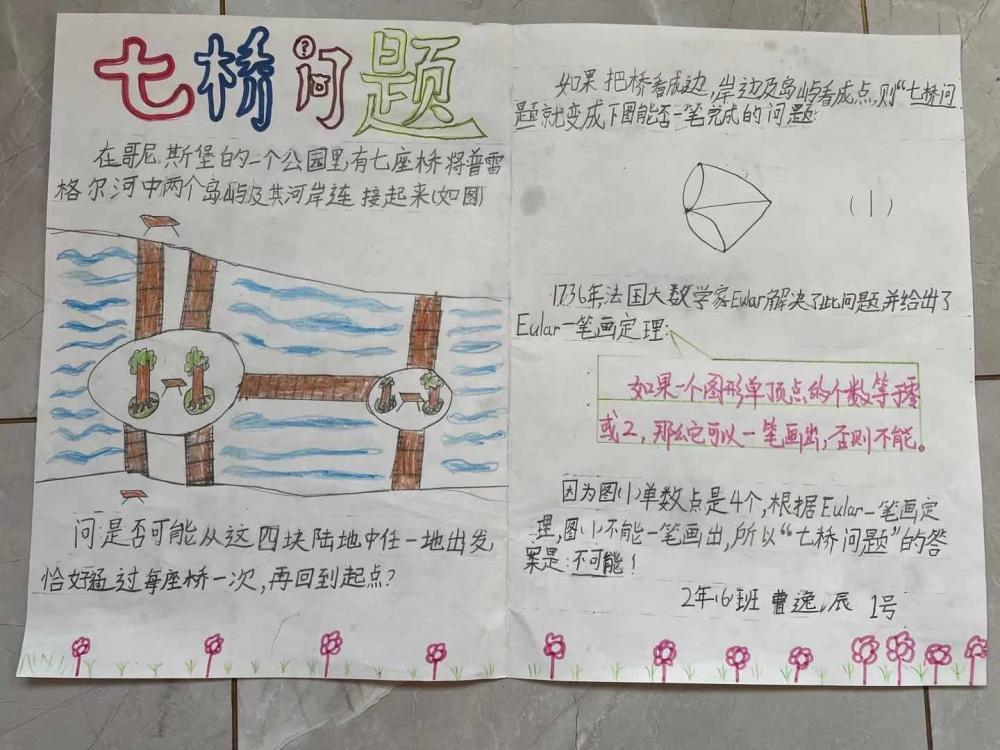 七桥问题
在哥尼斯堡的一个公园里,有七座桥将普雷
格尔河中两个岛屿及其河岸连接起来(如图)
问:是否可能从这四块陆地中任一地出发,
恰好过每座桥一次,再回到起点?
如果把桥看成边,岸边及岛屿看成点,则“七桥问
题就变成下图能否一笔完成的问题:
(1)
1736年,法国大数学家Eular解决了此问题并给出了
Eular一笔画定理:
如果一个图形单顶点的个数等于零
或2,那么它可以一笔画出,否则不能。
因为图(1)单数点是4个,根据Eular一笔画定
理,图(1)不能一笔画出,所以“七桥问题”的答
案是:不可能!
2年(6)班 曹逸辰 1号